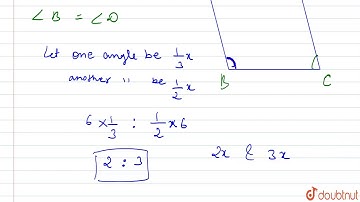 ∠B = ∠D
Let one angle be 1/3 x
another " be 1/2 x
B C
6 × 1/3 : 1/2 × 6
2 : 3
2x & 3x
doubtnut